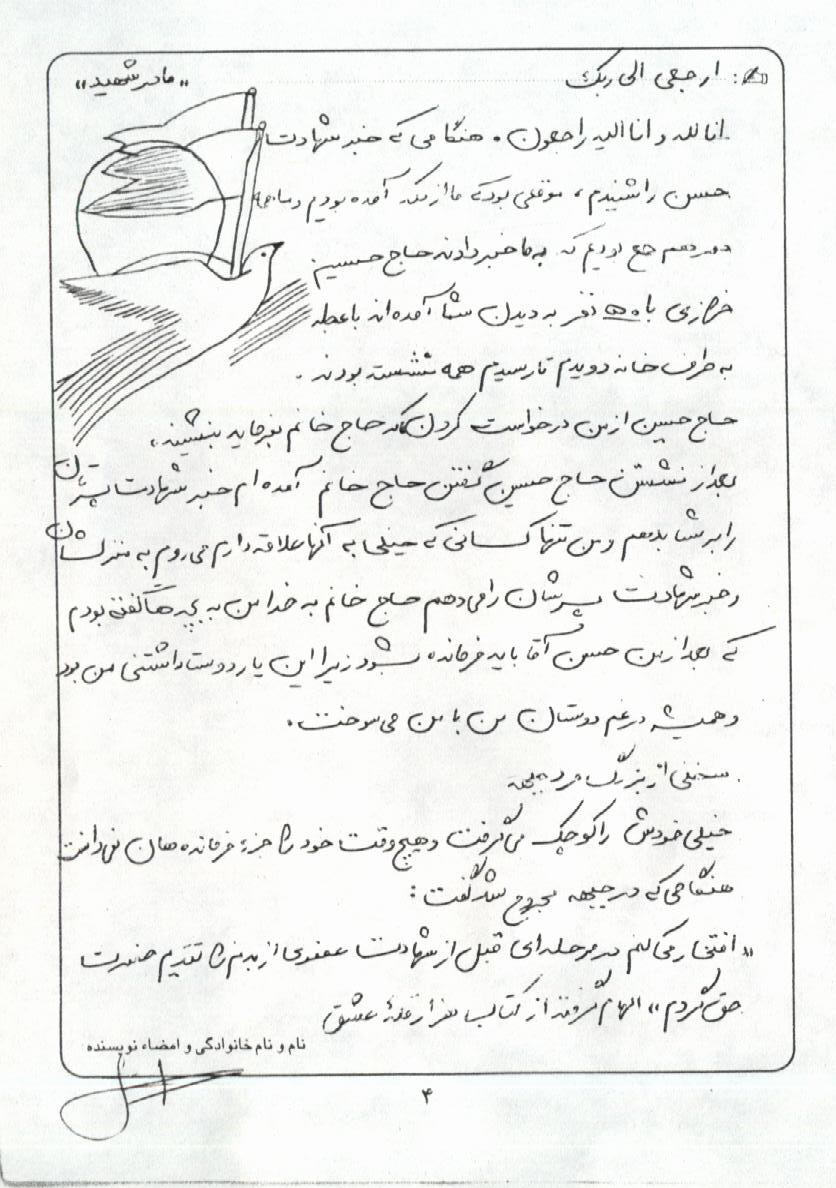 ارجعی الی ربک
«مادر شهید»
انا لله و انا الیه راجعون. هنگامی که خبر شهادت
حسن را شنیدم، موقعی بود که ما از مکه آمده بودیم و ما
دور هم جمع بودیم که به ما خبر دادند حاج حسین
خرازی با ۵۰ نفر به دیدن شما آمده اند با عجله
به طرف خانه دویدم تا رسیدم همه نشسته بودند.
حاج حسین از من درخواست کردن که حاج خانم بفرماید بنشیند،
بعد از نشستن حاج حسین گفتن حاج خانم آمده ام خبر شهادت پسرتان
را به شما بدهم و من تنها کسانی که خیلی به آنها علاقه دارم می روم به منزلشان
و خبر شهادت پسرشان را می دهم حاج خانم به خدا من به بچه ها گفته بودم
که بعد از من حسن آقا باید فرمانده بشود زیرا این یار دوست داشتنی من بود
و همیشه در غم دوستان من با من می سوخت.
سخنی از بزرگ مرد جبهه
خیلی خودش را کوچک می گرفت و هیچ وقت خود را جزء فرمانده هان نمی دانست
هنگامی که در جبهه مجروح شد گفت:
«افتخار می کنم در مرحله ای قبل از شهادت عضوی از بدنم را تقدیم حضرت
حق کردم» الهام گرفته از کتاب هزار قلهٔ عشق
نام و نام خانوادگی و امضاء نویسنده
۴